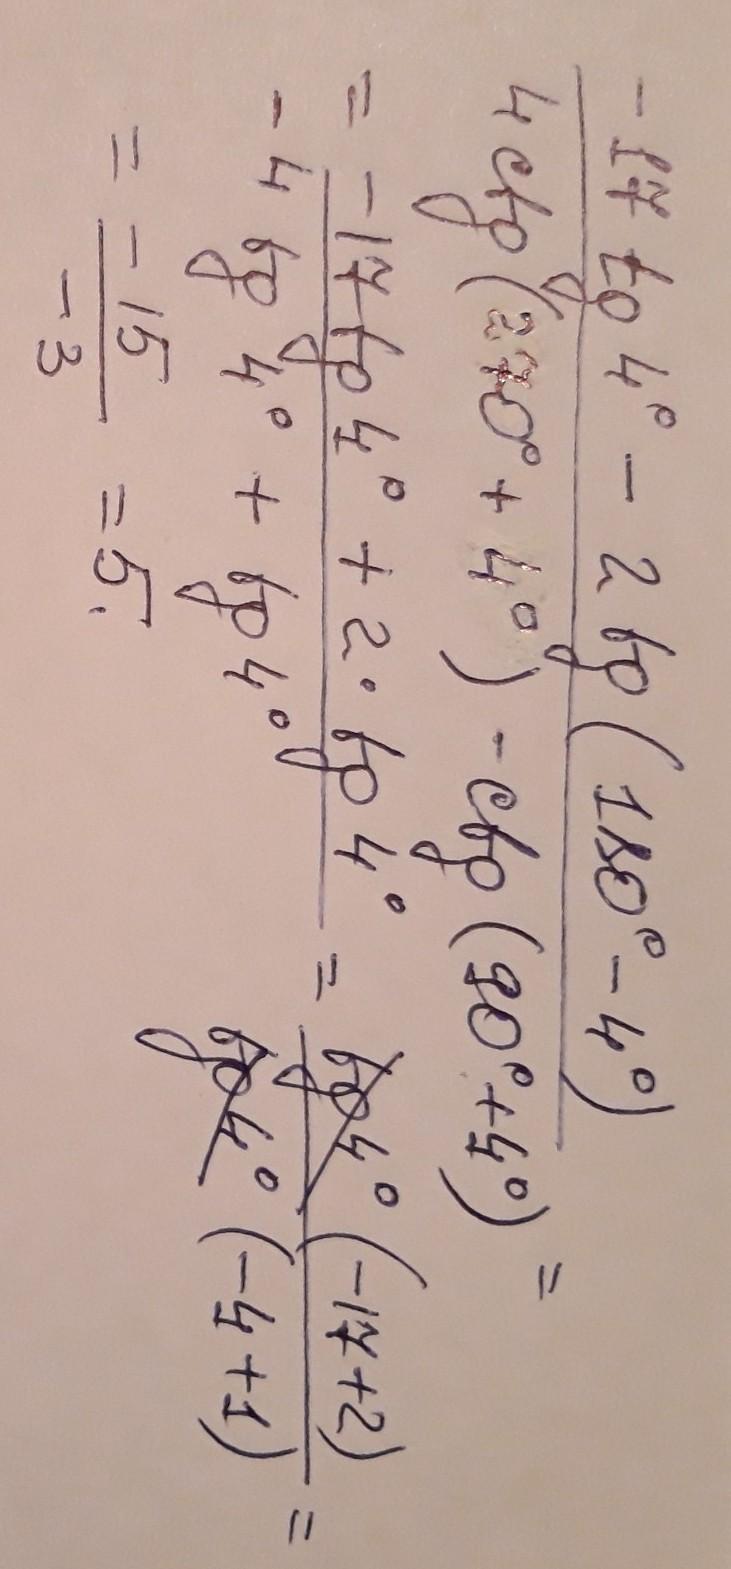 -17 tg 4° - 2 tg (180° - 4°)
4 ctg (270° + 4°) - ctg (90° + 4°) =
= -17 tg 4° + 2 · tg 4°
- 4 tg 4° + tg 4°
= tg 4° (-17 + 2)
tg 4° (-4 + 1) =
= -15
-3
= 5.